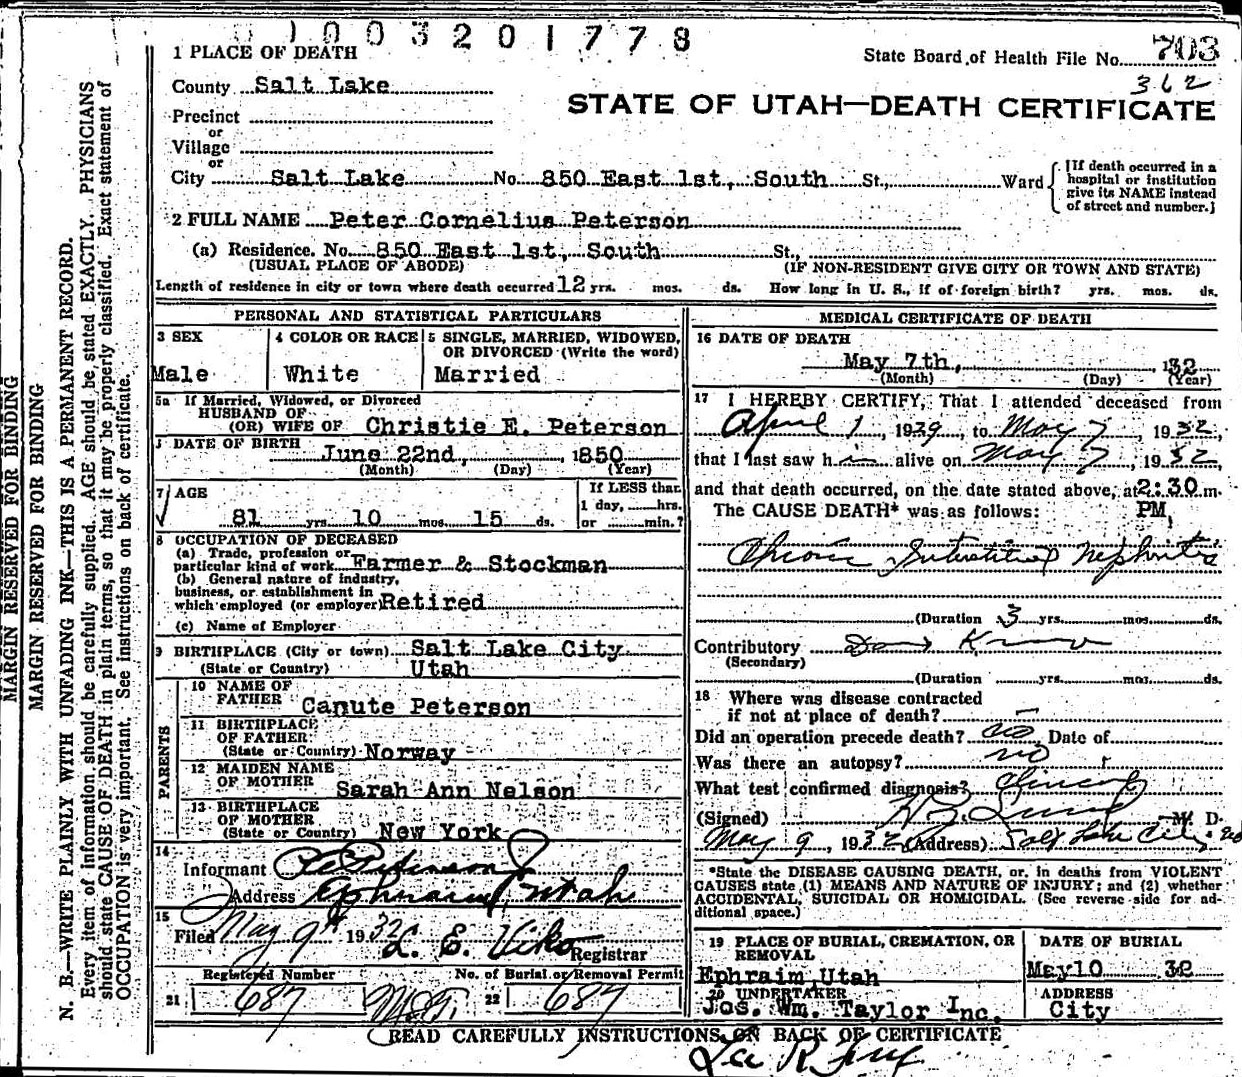 1003201778
1 PLACE OF DEATH
State Board of Health File No. 703
362
County Salt Lake
STATE OF UTAH—DEATH CERTIFICATE
Precinct
or
Village
or
City Salt Lake No. 850 East 1st, South St., Ward
{If death occurred in a hospital or institution give its NAME instead of street and number.}
2 FULL NAME Peter Cornelius Peterson
(a) Residence. No. 850 East 1st, South St.,
(USUAL PLACE OF ABODE) (IF NON-RESIDENT GIVE CITY OR TOWN AND STATE)
Length of residence in city or town where death occurred 12 yrs. mos. ds. How long in U. S., if of foreign birth? yrs. mos. ds.
PERSONAL AND STATISTICAL PARTICULARS
3 SEX
Male
4 COLOR OR RACE
White
5 SINGLE, MARRIED, WIDOWED, OR DIVORCED (Write the word)
Married
5a If Married, Widowed, or Divorced
HUSBAND OF
(OR) WIFE OF Christie E. Peterson
DATE OF BIRTH
June 22nd, 1850
(Month) (Day) (Year)
7 AGE
81 yrs. 10 mos. 15 ds.
If LESS than
1 day, hrs.
or min.?
8 OCCUPATION OF DECEASED
(a) Trade, profession or
particular kind of work Farmer & Stockman
(b) General nature of industry,
business, or establishment in
which employed (or employer) Retired
(c) Name of Employer
9 BIRTHPLACE (City or town) Salt Lake City
(State or Country) Utah
PARENTS
10 NAME OF
FATHER Canute Peterson
11 BIRTHPLACE
OF FATHER
(State or Country) Norway
12 MAIDEN NAME
OF MOTHER Sarah Ann Nelson
13 BIRTHPLACE
OF MOTHER
(State or Country) New York
14
Informant
Address Ephraim, Utah
15
Filed May 9th 1932 L. E. Viko
Registrar
Registered Number
21 687
No. of Burial or Removal Permit
22 687
MEDICAL CERTIFICATE OF DEATH
16 DATE OF DEATH
May 7th, 132
(Month) (Day) (Year)
17 I HEREBY CERTIFY, That I attended deceased from
April 1, 1929, to May 7, 1932,
that I last saw h im alive on May 7, 1932,
and that death occurred, on the date stated above, at 2:30 m.
The CAUSE DEATH* was as follows: PM,
Chronic Interstitial Nephritis
(Duration 3 yrs. mos. ds.
Contributory
(Secondary)
(Duration yrs. mos. ds.
18 Where was disease contracted
if not at place of death?
Did an operation precede death? no Date of
Was there an autopsy? no
What test confirmed diagnosis? Clinical
(Signed) M. D.
May 9, 1932 (Address) Salt Lake City
*State the DISEASE CAUSING DEATH, or, in deaths from VIOLENT
CAUSES state (1) MEANS AND NATURE OF INJURY; and (2) whether
ACCIDENTAL, SUICIDAL OR HOMICIDAL. (See reverse side for ad-
ditional space.)
19 PLACE OF BURIAL, CREMATION, OR REMOVAL
Ephraim, Utah
DATE OF BURIAL
May 10 32
20 UNDERTAKER
Jos. Wm. Taylor Inc.
ADDRESS
City
READ CAREFULLY INSTRUCTIONS ON BACK OF CERTIFICATE
MARGIN RESERVED FOR BINDING
MARGIN RESERVED FOR BINDING
N. B.—WRITE PLAINLY WITH UNFADING INK—THIS IS A PERMANENT RECORD.
Every item of information should be carefully supplied. AGE should be stated EXACTLY. PHYSICIANS
should state CAUSE OF DEATH in plain terms, so that it may be properly classified. Exact statement of
OCCUPATION is very important. See instructions on back of certificate.